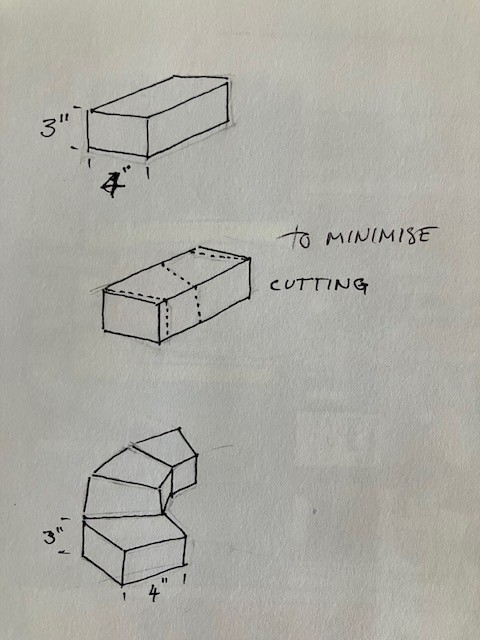 3"
4"
TO MINIMISE
CUTTING
3"
4"